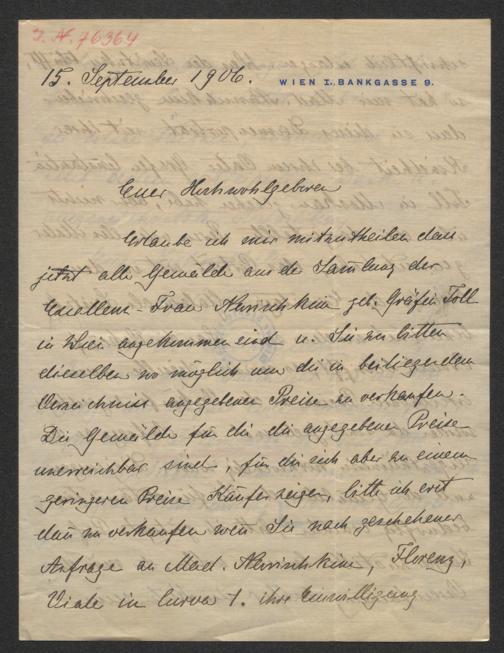 J. N. 76364
15. September 1906.
WIEN I. BANKGASSE 9.
Euer Hochwohlgeboren
Erlaube ich mir mitzutheilen dass
jetzt alle Gemälde aus der Samlung der
Excellenz-Frau Narischkine geb. Gräfin Toll
in Wien angekommen sind u. Sie zu bitten
dieselben wo möglich um die in beiliegendem
Verzeichniss angegebenen Preise zu verkaufen.
Die Gemälde für die die angegebenen Preise
unerreichbar sind, für die sich aber zu einem
geringeren Preise Käufer zeigen, bitte ich erst
dan zu verkaufen wen Sie nach geschehener
Anfrage an Mad. Narischkine, Florenz,
Viale in Curva 1. ihre Einwilligung